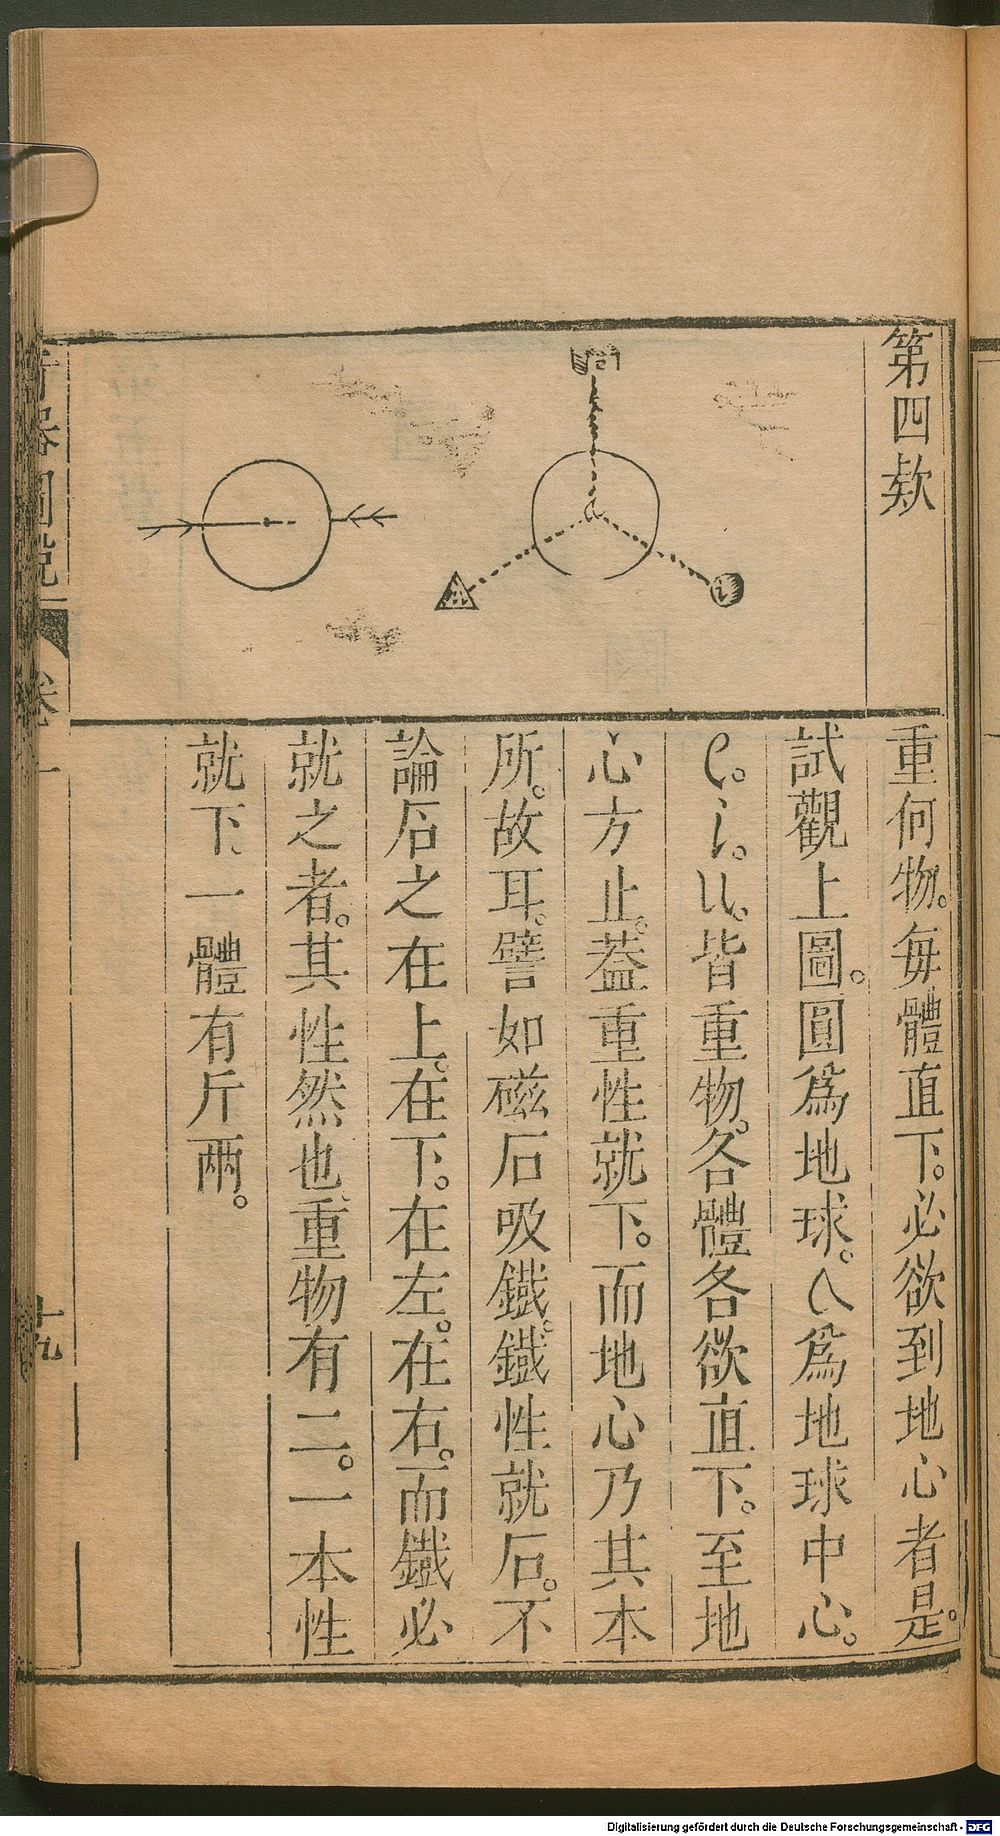 第四款
重何物。每體直下。必欲到地心者是。
試觀上圖。圓爲地球。a爲地球中心。
e。i。u。皆重物。各體各欲直下。至地
心方止。葢重性就下。而地心乃其本
所。故耳。譬如磁石吸鐵。鐵性就石。不
論石之在上。在下。在左。在右。而鐵必
就之者。其性然也。重物有二。一本性
就下、一體有斤兩。
奇器圖說
卷一
十九
Digitalisierung gefördert durch die Deutsche Forschungsgemeinschaft - DFG